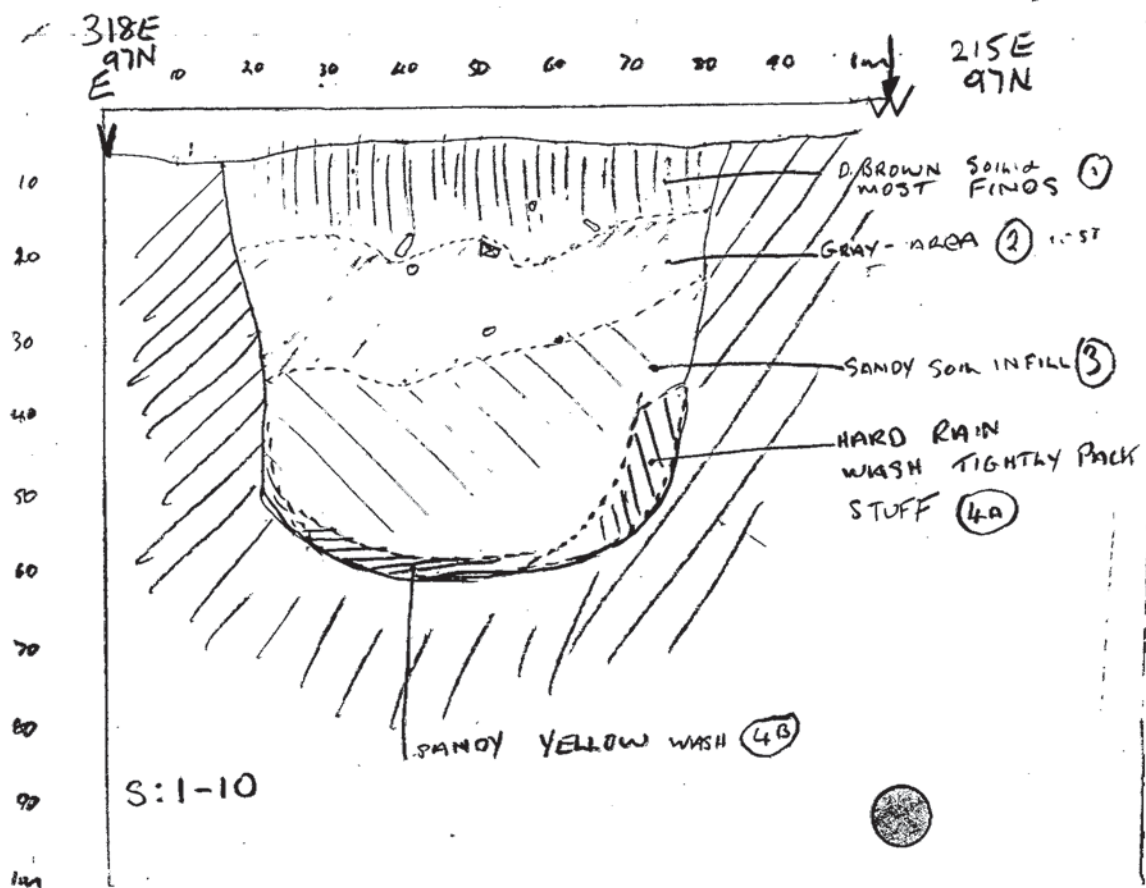 318E
97N
E
10 20 30 40 50 60 70 80 90 1m
215E
97N
W
10
20
30
40
50
60
70
80
90
1m
D. BROWN
MOST FINDS 1
GRAY - AREA 2
SANDY SOIL INFILL 3
HARD RAIN
WASH TIGHTLY PACK
STUFF 4A
SANDY YELLOW WASH 4B
S:1-10